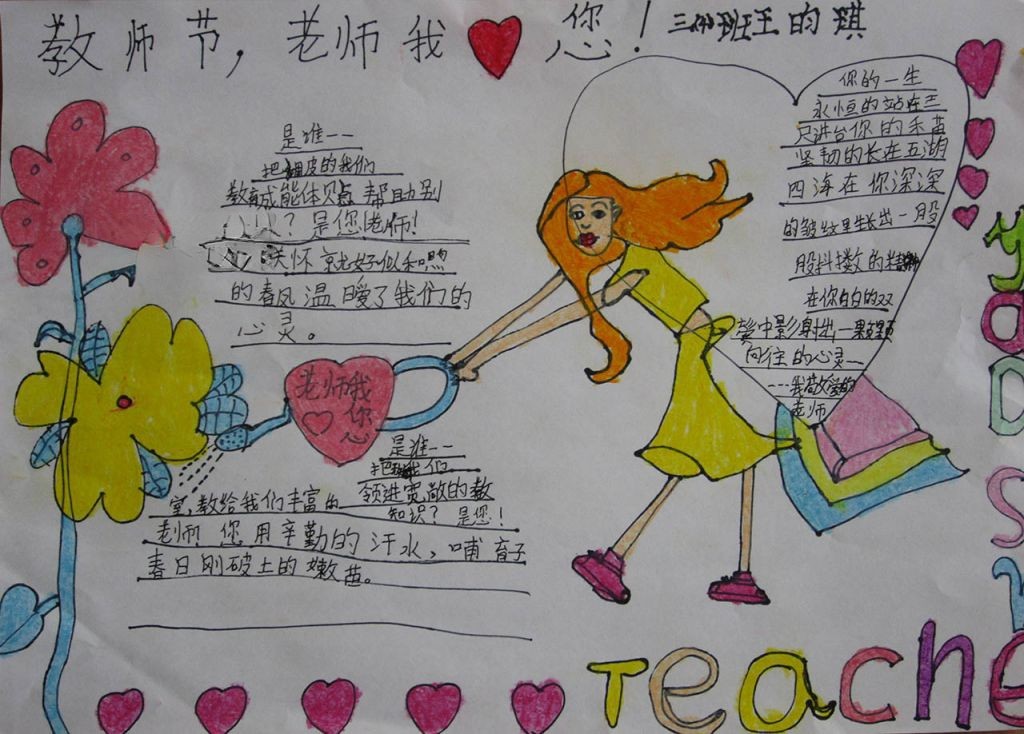 教师节，老师我 您！三 班王昀琪
是谁——
把 皮的我们
教育成能体贴 帮助别
？是您老师！
关怀 就好似和
的春风温暖了我们的
心灵。
老师我
您
是谁——
把 我们
领进宽敞的教
室，教给我们丰富的
知识？是您！
老师 您用辛勤的汗水、哺育子
春日刚破土的嫩苗。
你的一生
永恒的站在三
尺讲台你的禾苗
坚韧的长在五湖
四海在你深深
的皱纹里长出一股
股抖擞的精神
在你白白的双
鬓中影射出一颗颗
向往的心灵——
---我敬爱的
老师
Teache